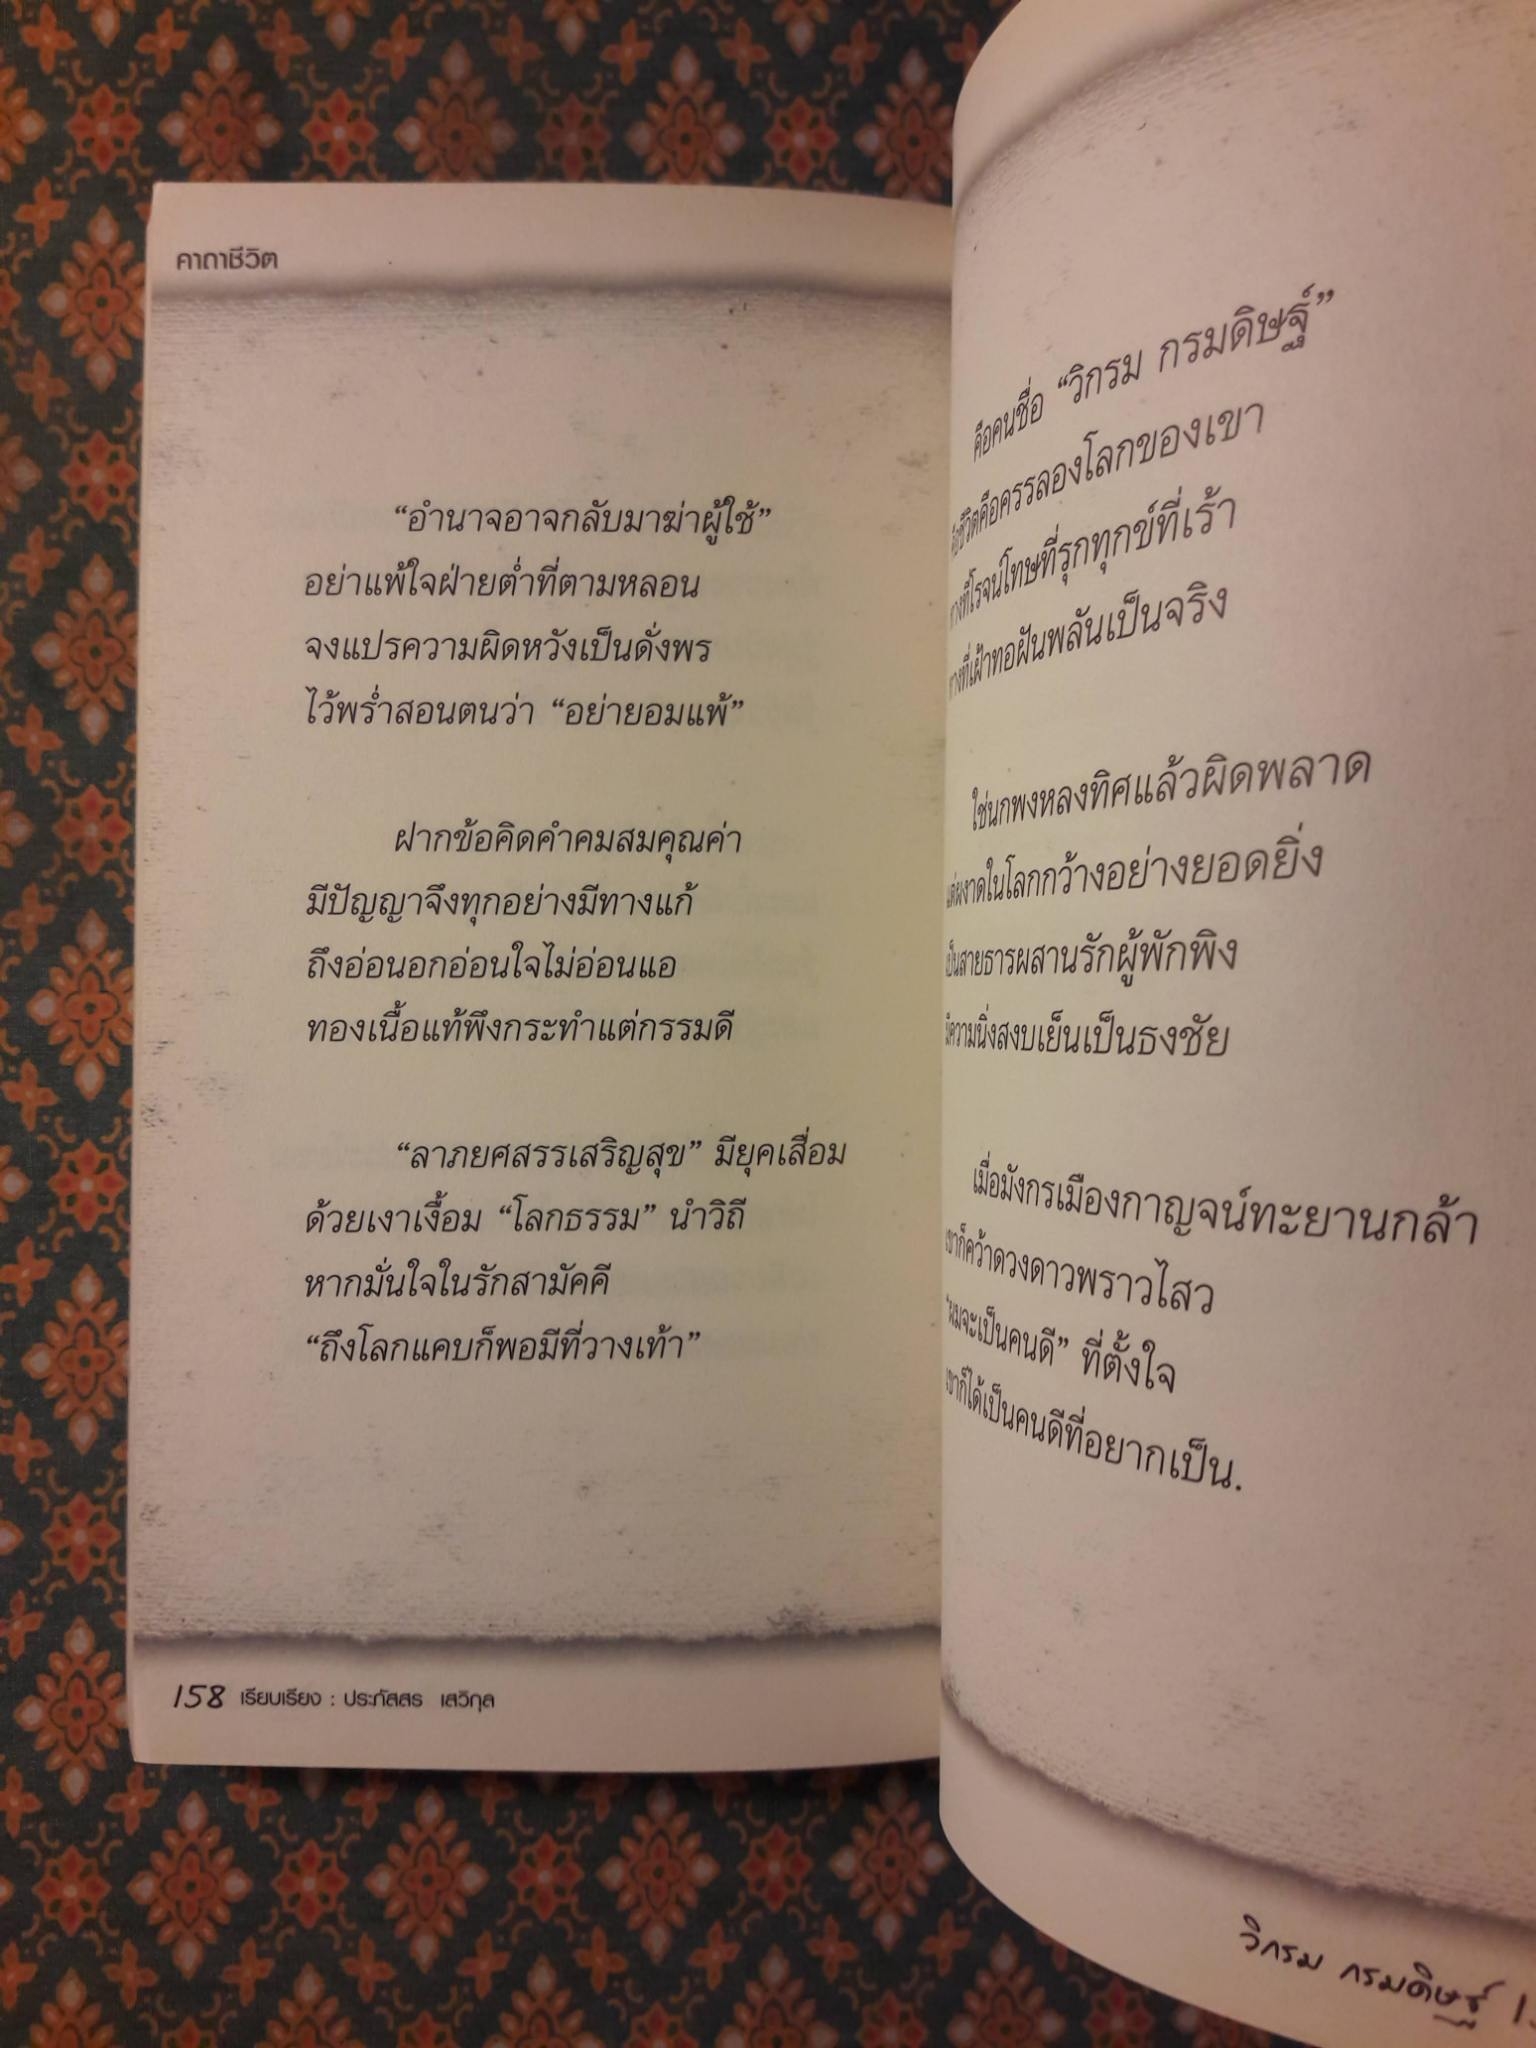 คาถาชีวิต
“อำนาจอาจกลับมาฆ่าผู้ใช้”
อย่าแพ้ใจฝ่ายต่ำที่ตามหลอน
จงแปรความผิดหวังเป็นดั่งพร
ไว้พร่ำสอนตนว่า “อย่ายอมแพ้”
ฝากข้อคิดคำคมสมคุณค่า
มีปัญญาจึงทุกอย่างมีทางแก้
ถึงอ่อนอกอ่อนใจไม่อ่อนแอ
ทองเนื้อแท้พึงกระทำแต่กรรมดี
“ลาภยศสรรเสริญสุข” มียุคเสื่อม
ด้วยเงาเงื้อม “โลกธรรม” นำวิถี
หากมั่นใจในรักสามัคคี
“ถึงโลกแคบก็พอมีที่วางเท้า”
158 เรียบเรียง : ประภัสสร เสวิกุล
คือคนชื่อ “วิกรม กรมดิษฐ์”
ชีวิตคือครรลองโลกของเขา
ทางที่โรจน์โทษที่รุกทุกข์ที่เร้า
ทางที่เฝ้าทอฝันพลันเป็นจริง
ใช่นกพงหลงทิศแล้วผิดพลาด
แต่ผงาดในโลกกว้างอย่างยอดยิ่ง
เป็นสายธารผสานรักผู้พักพิง
มีความนิ่งสงบเย็นเป็นธงชัย
เมื่อมังกรเมืองกาญจน์ทะยานกล้า
เขาก็คว้าดวงดาวพราวไสว
“ผมจะเป็นคนดี” ที่ตั้งใจ
เขาก็ได้เป็นคนดีที่อยากเป็น.
วิกรม กรมดิษฐ์